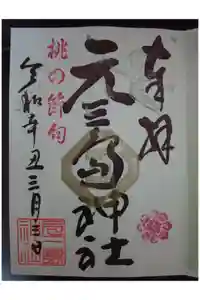 奉拝
元三島神社
桃の節句
令和辛丑三月三日